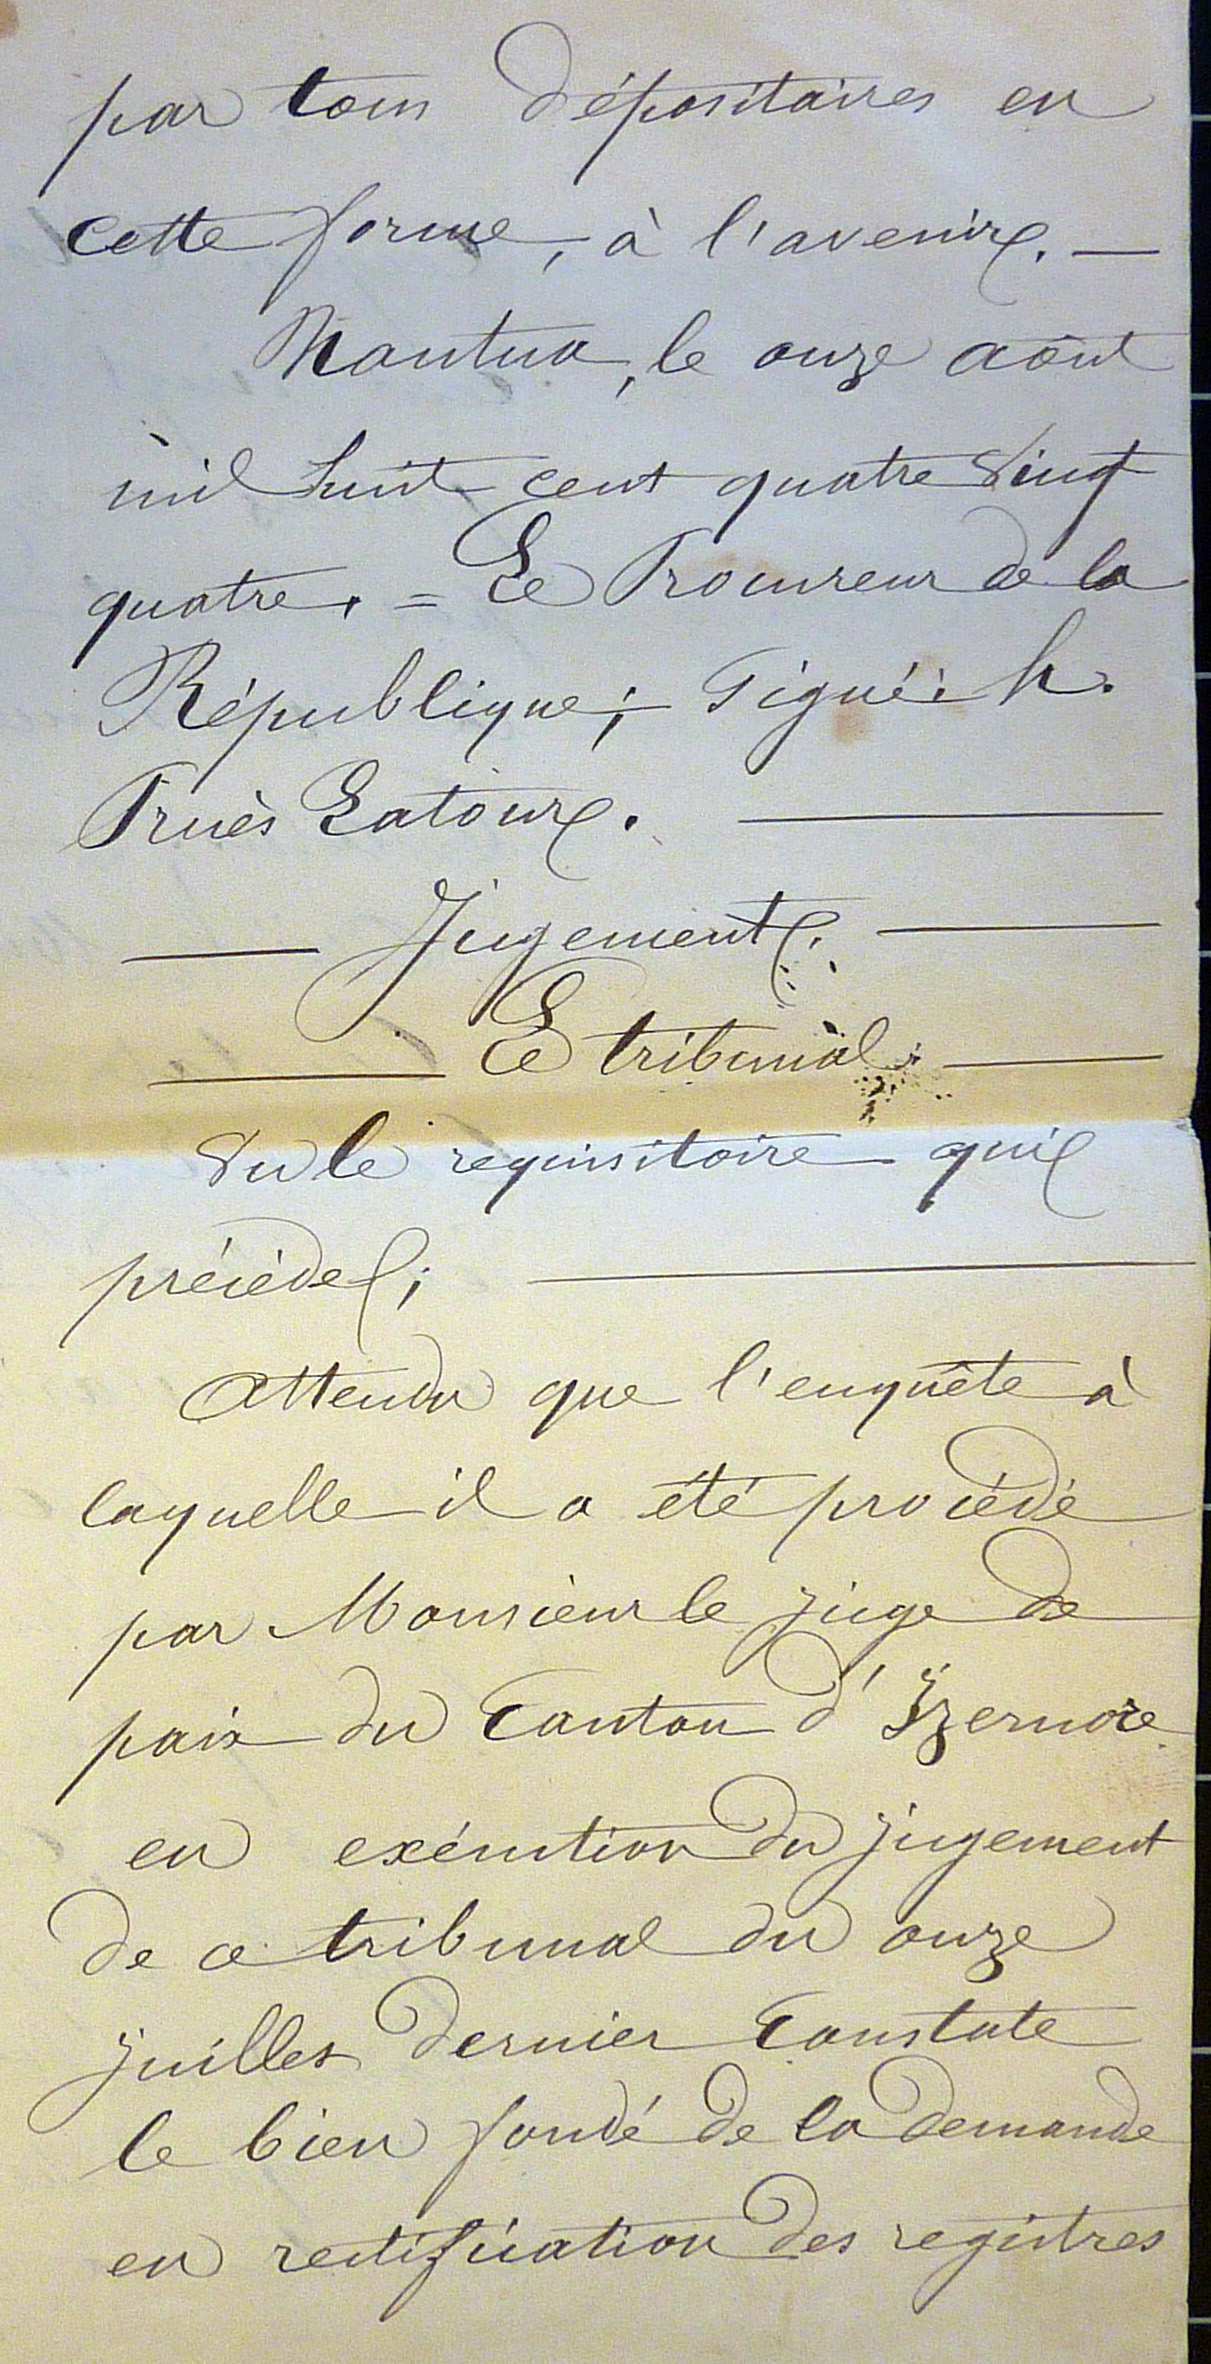 par tous dépositaires en
cette forme, à l'avenir. —
Nantua, le onze août
mil huit cent quatre vingt
quatre. = Le Procureur de la
République; Signé: h.
Pruès Latour.
Jugement.
Le tribunal
Vu le requisitoire qui
précède;
Attendu que l'enquête à
laquelle il a été procédé
par Monsieur le juge de
paix du Canton d'Izernore
en exécution du jugement
de ce tribunal du onze
juillet dernier Constate
le bien fondé de la demande
en rectification des registres